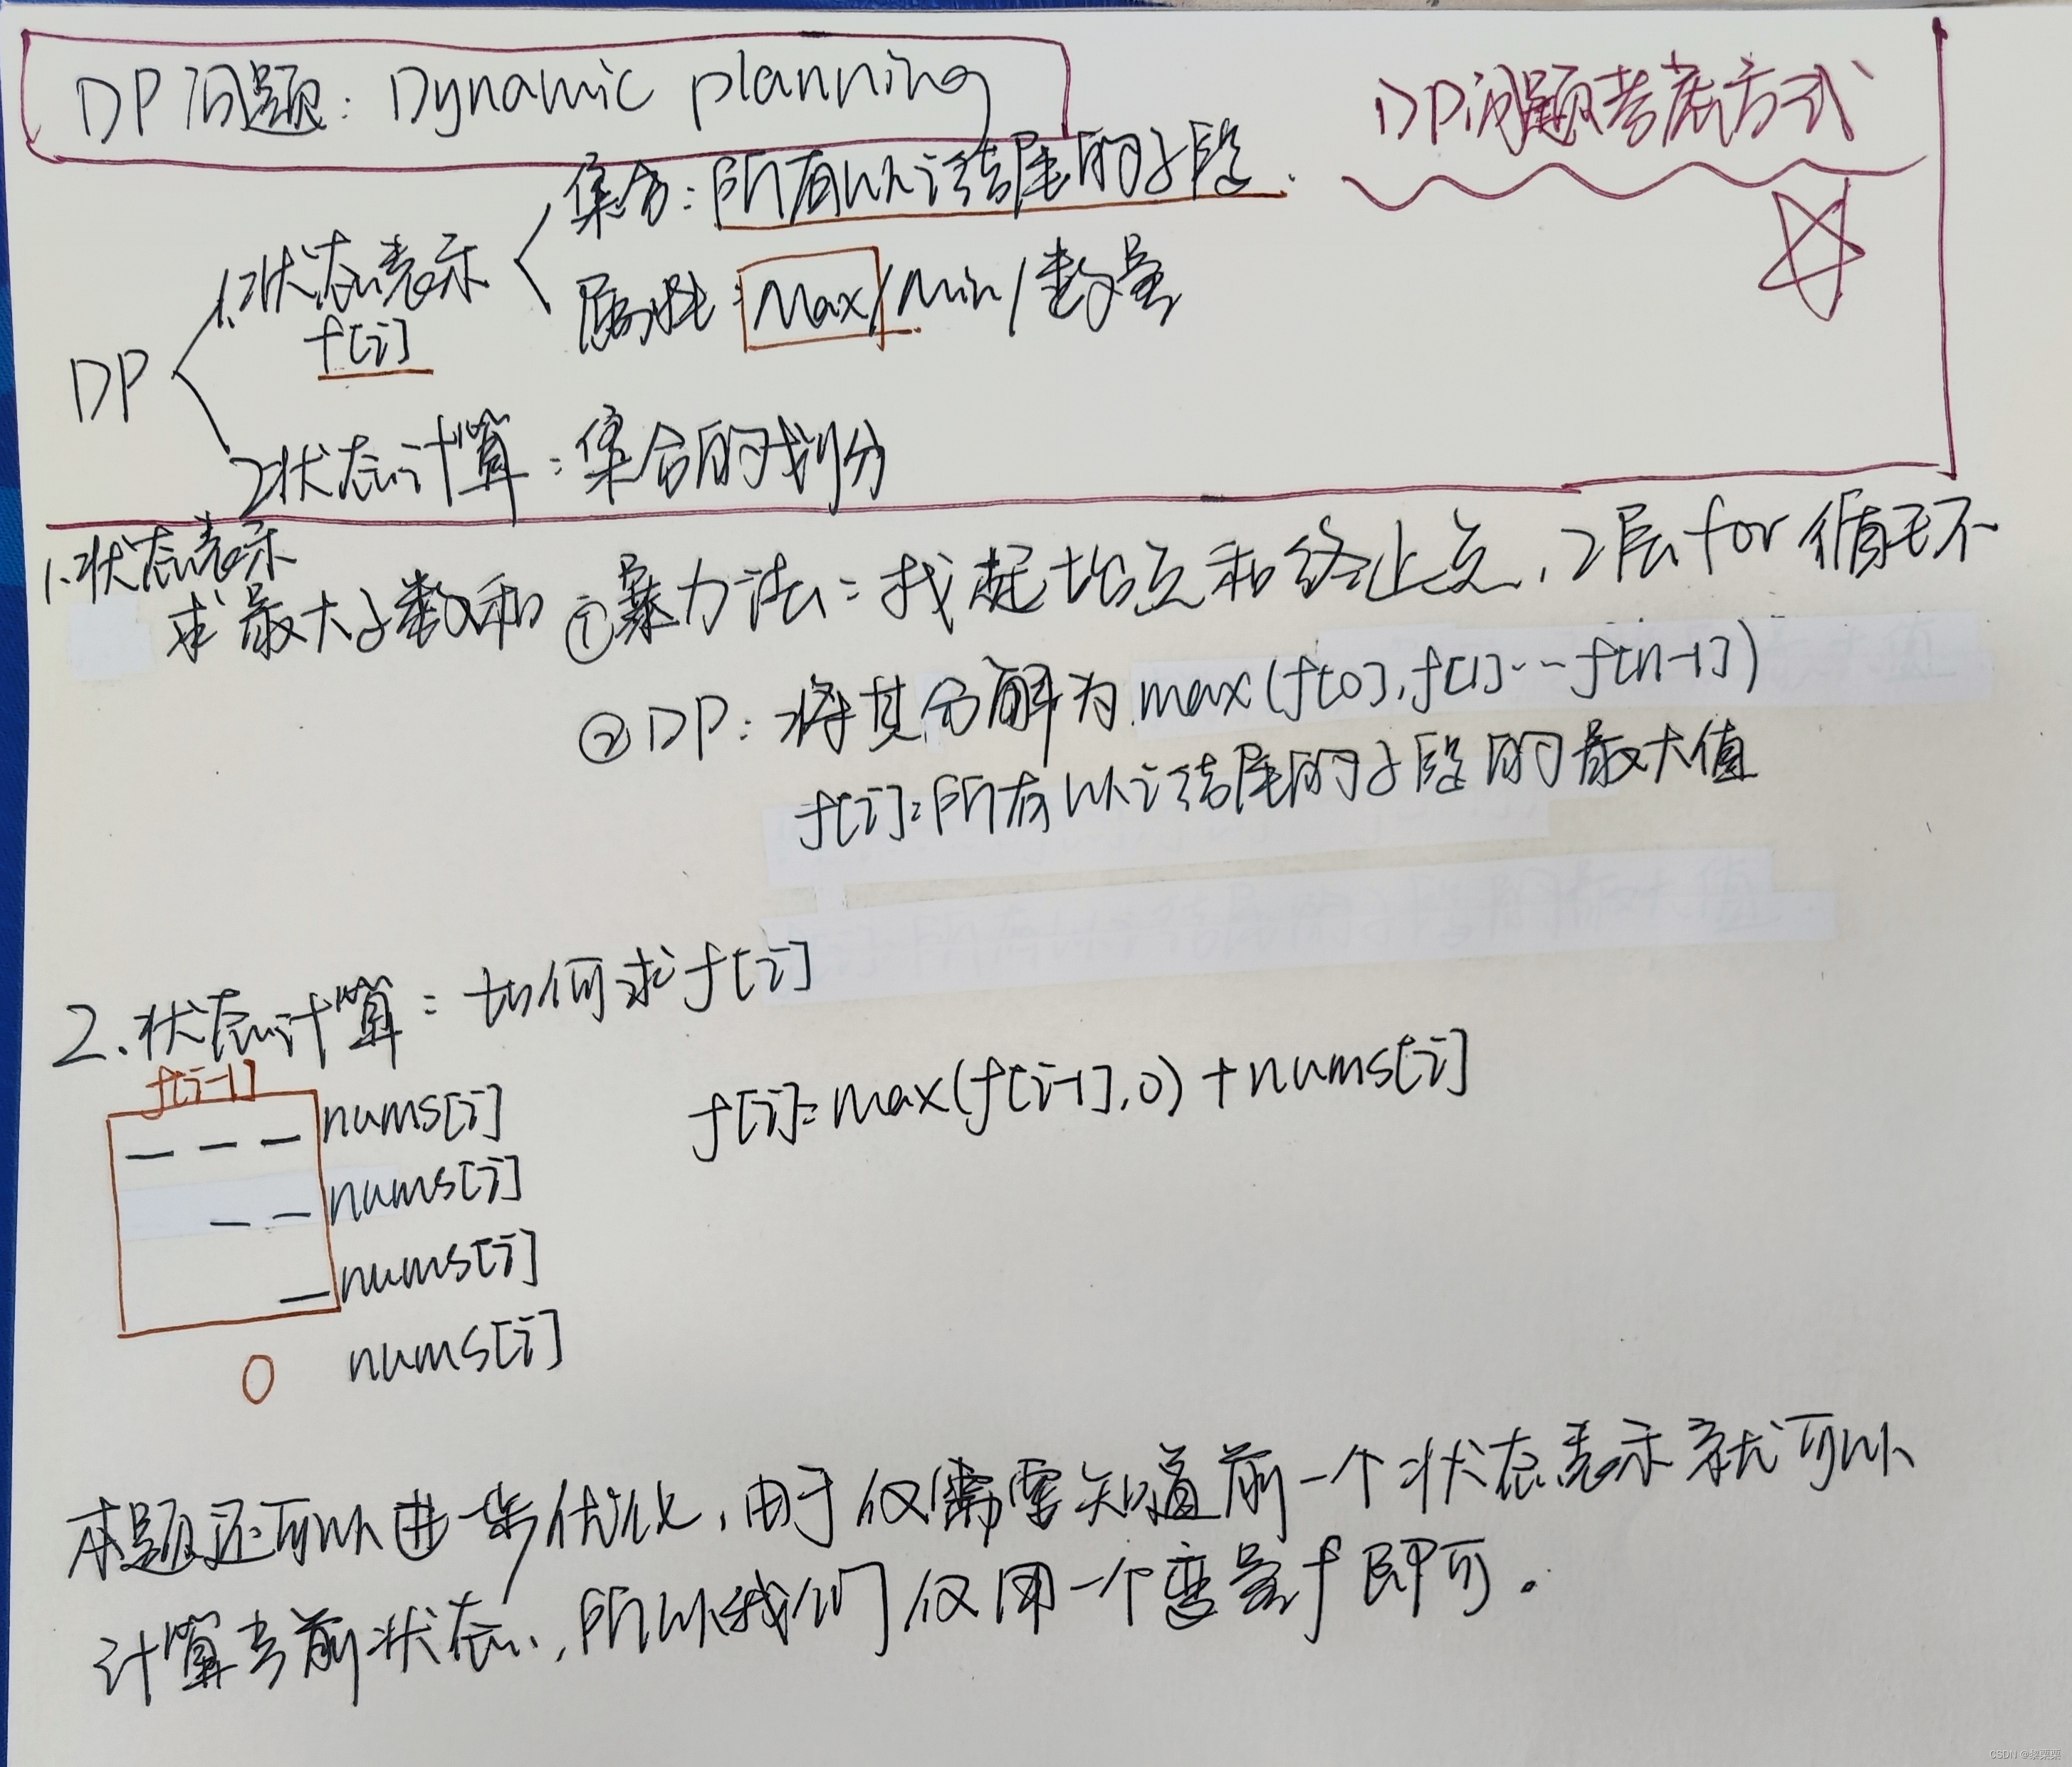 DP问题：Dynamic planning
DP问题考虑方式
集合：所有以i结尾的子段.
1.状态表示
属性：Max/Min/数量
f[i]
DP
2状态计算：集合的划分
1.状态表示
求最大子数和 ①暴力法：找起始点和终止点，2层for循环
②DP：将其分解为max(f[0],f[1]--f[n-1])
f[i]:所有以i结尾的子段的最大值
2.状态计算：如何求f[i]
f[i-1]
nums[i]
f[i]=max(f[i-1],0)+nums[i]
nums[i]
nums[i]
0 nums[i]
本题还可以进一步优化，由于仅需要知道前一个状态表示就可以
计算当前状态，所以我们仅用一个变量f即可。
CSDN